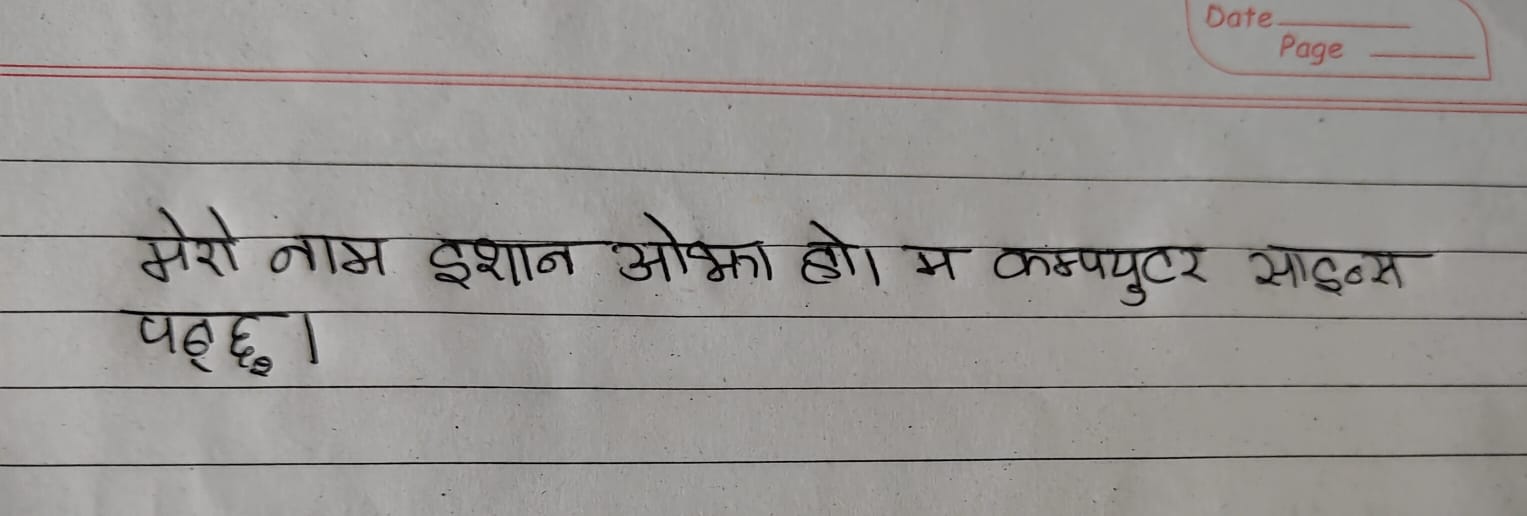 Date
Page
मेरो नाम इशान ओझा हो। म कम्पयुटर साइन्स
पढ्छु।